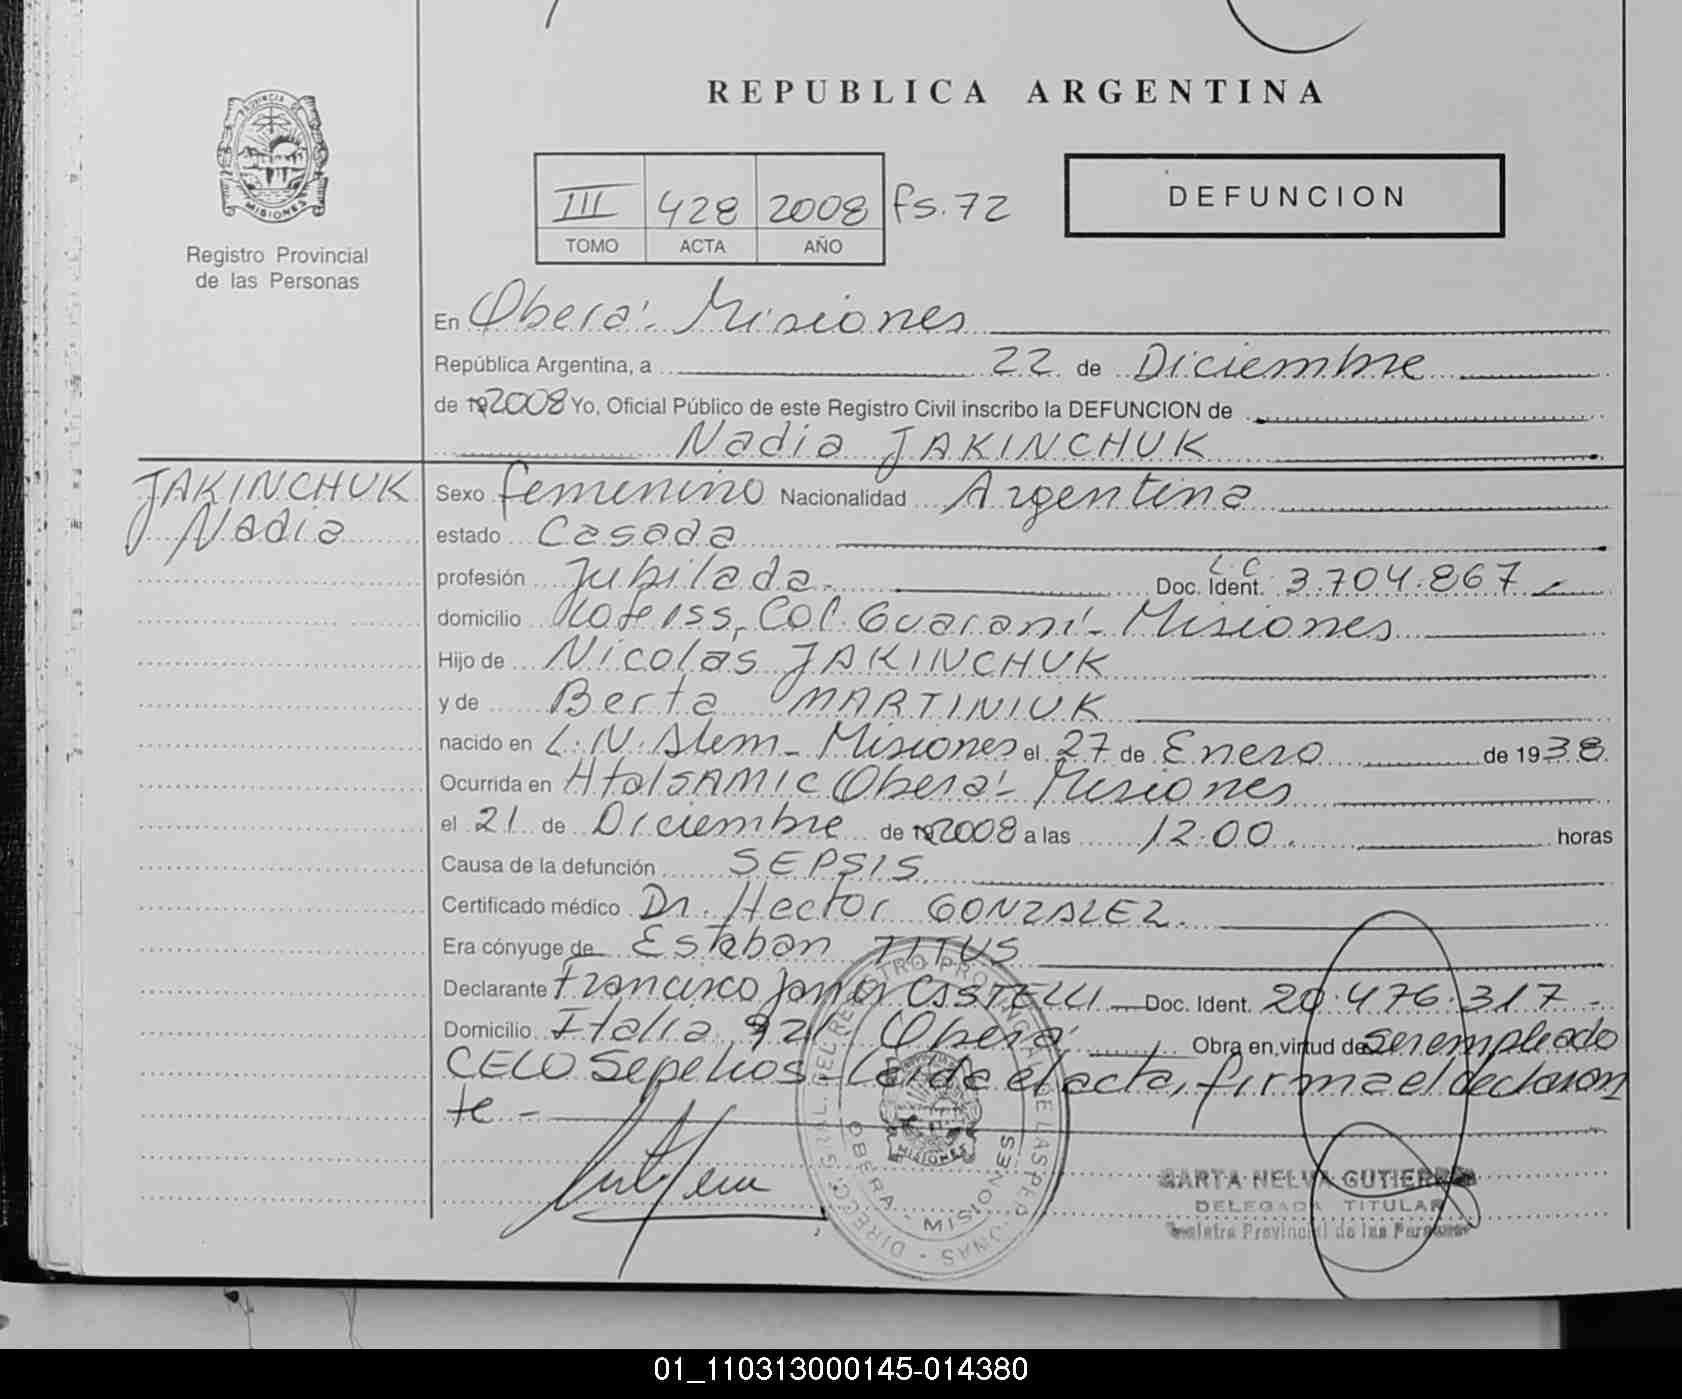 REPUBLICA ARGENTINA
PROVINCIA DE
MISIONES
Registro Provincial
de las Personas
III 428 2008 fs.72
TOMO ACTA AÑO
DEFUNCION
En Oberá - Misiones
República Argentina, a 22 de Diciembre
de 192008 Yo, Oficial Público de este Registro Civil inscribo la DEFUNCION de
Nadia JAKINCHUK
JAKINCHUK
Nadia
Sexo femenino Nacionalidad Argentina
estado Casada
profesión Jubilada.- L.C Doc. Ident. 3.704.867.-
domicilio Lote 155, Col. Guaraní - Misiones
Hijo de Nicolas JAKINCHUK
y de Berta MARTINIUK
nacido en L.N. Alem - Misiones el 27 de Enero de 1938.
Ocurrida en Htal SAMIC Oberá - Misiones
el 21 de Diciembre de 192008 a las 12:00. horas
Causa de la defunción SEPSIS
Certificado médico Dr. Hector GONZALEZ.
Era cónyuge de Esteban TITUS
Declarante Francisco Javier CASTELLI Doc. Ident. 20.476.317.-
Domicilio Italia 92 Oberá Obra en virtud de ser empleado
CELO Sepelios - Leída el acta, firma el declaran
te -
OBERA - MISIONES
MISIONES
MARTA NELVA GUTIERREZ
DELEGADA TITULAR
Registro Provincial de las Personas
01_110313000145-014380